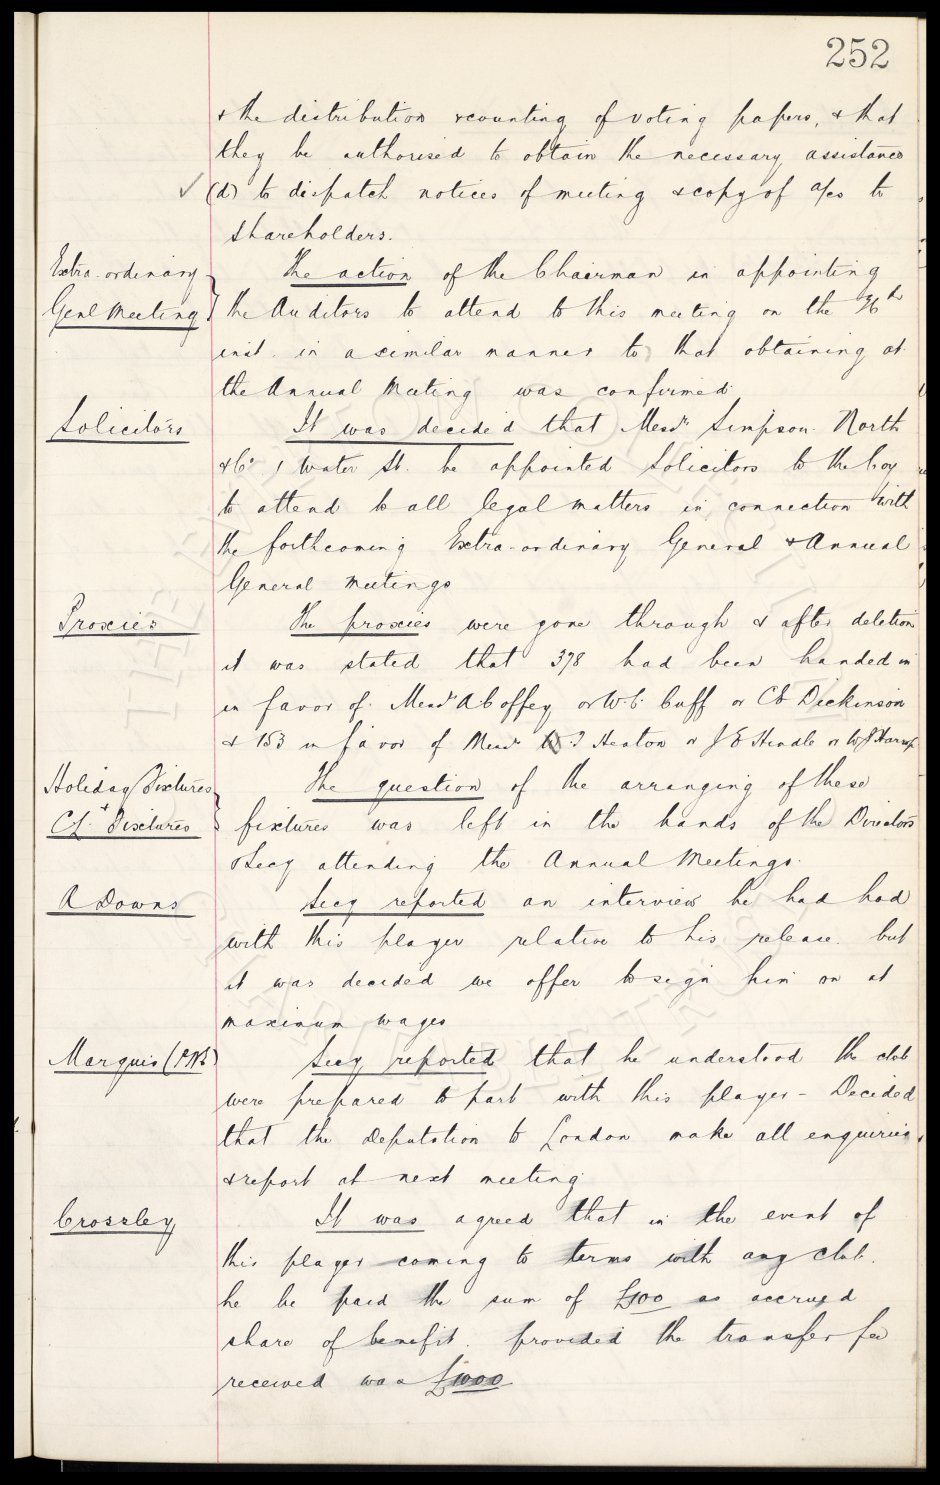 252
& the distribution & counting of voting papers, & that
they be authorised to obtain the necessary assistance
✓ (d) to dispatch notices of meeting & copy of a/cs to
shareholders.
Extra-ordinary
Genl Meeting
The action of the Chairman in appointing
the Auditors to attend to this meeting on the 26th
inst. in a similar manner to that obtaining at
the Annual Meeting was confirmed.
Solicitors
It was decided that Messrs Simpson North
& Co. 1 Water St. be appointed Solicitors to the Coy
to attend to all legal matters in connection with
the forthcoming Extra-ordinary General & Annual
General Meetings
Proxies
The proxies were gone through & after deletion
it was stated that 378 had been handed in
in favor of Messrs A Coffey or W. C. Cuff or C E Dickinson
& 153 in favor of Messrs T Heaton or J E Hindle or W J Harrop
Holiday Fixtures
+
C L. Fixtures
The question of the arranging of these
fixtures was left in the hands of the Directors
& Secy attending the Annual Meetings.
A Downs
Secy reported an interview he had had
with this player relative to his release. but
it was decided we offer to sign him on at
maximum wages
Marquis (PNE)
Secy reported that he understood the club
were prepared to part with this player – Decided
that the deputation to London make all enquiries
& report at next meeting
Crossley
It was agreed that in the event of
this player coming to terms with any club.
he be paid the sum of £300 as accrued
share of benefit. provided the transfer fee
received was £1000